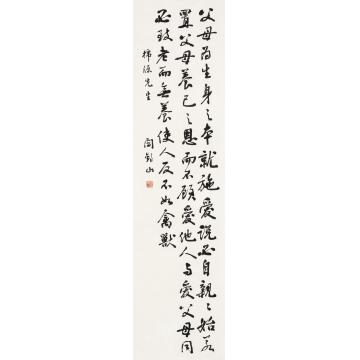 父母為生身之本就施愛說必自親之始若
置父母養己之恩而不顧愛他人与愛父母同
必致老而無養使人反不如禽獸
棉源先生
閻錫山